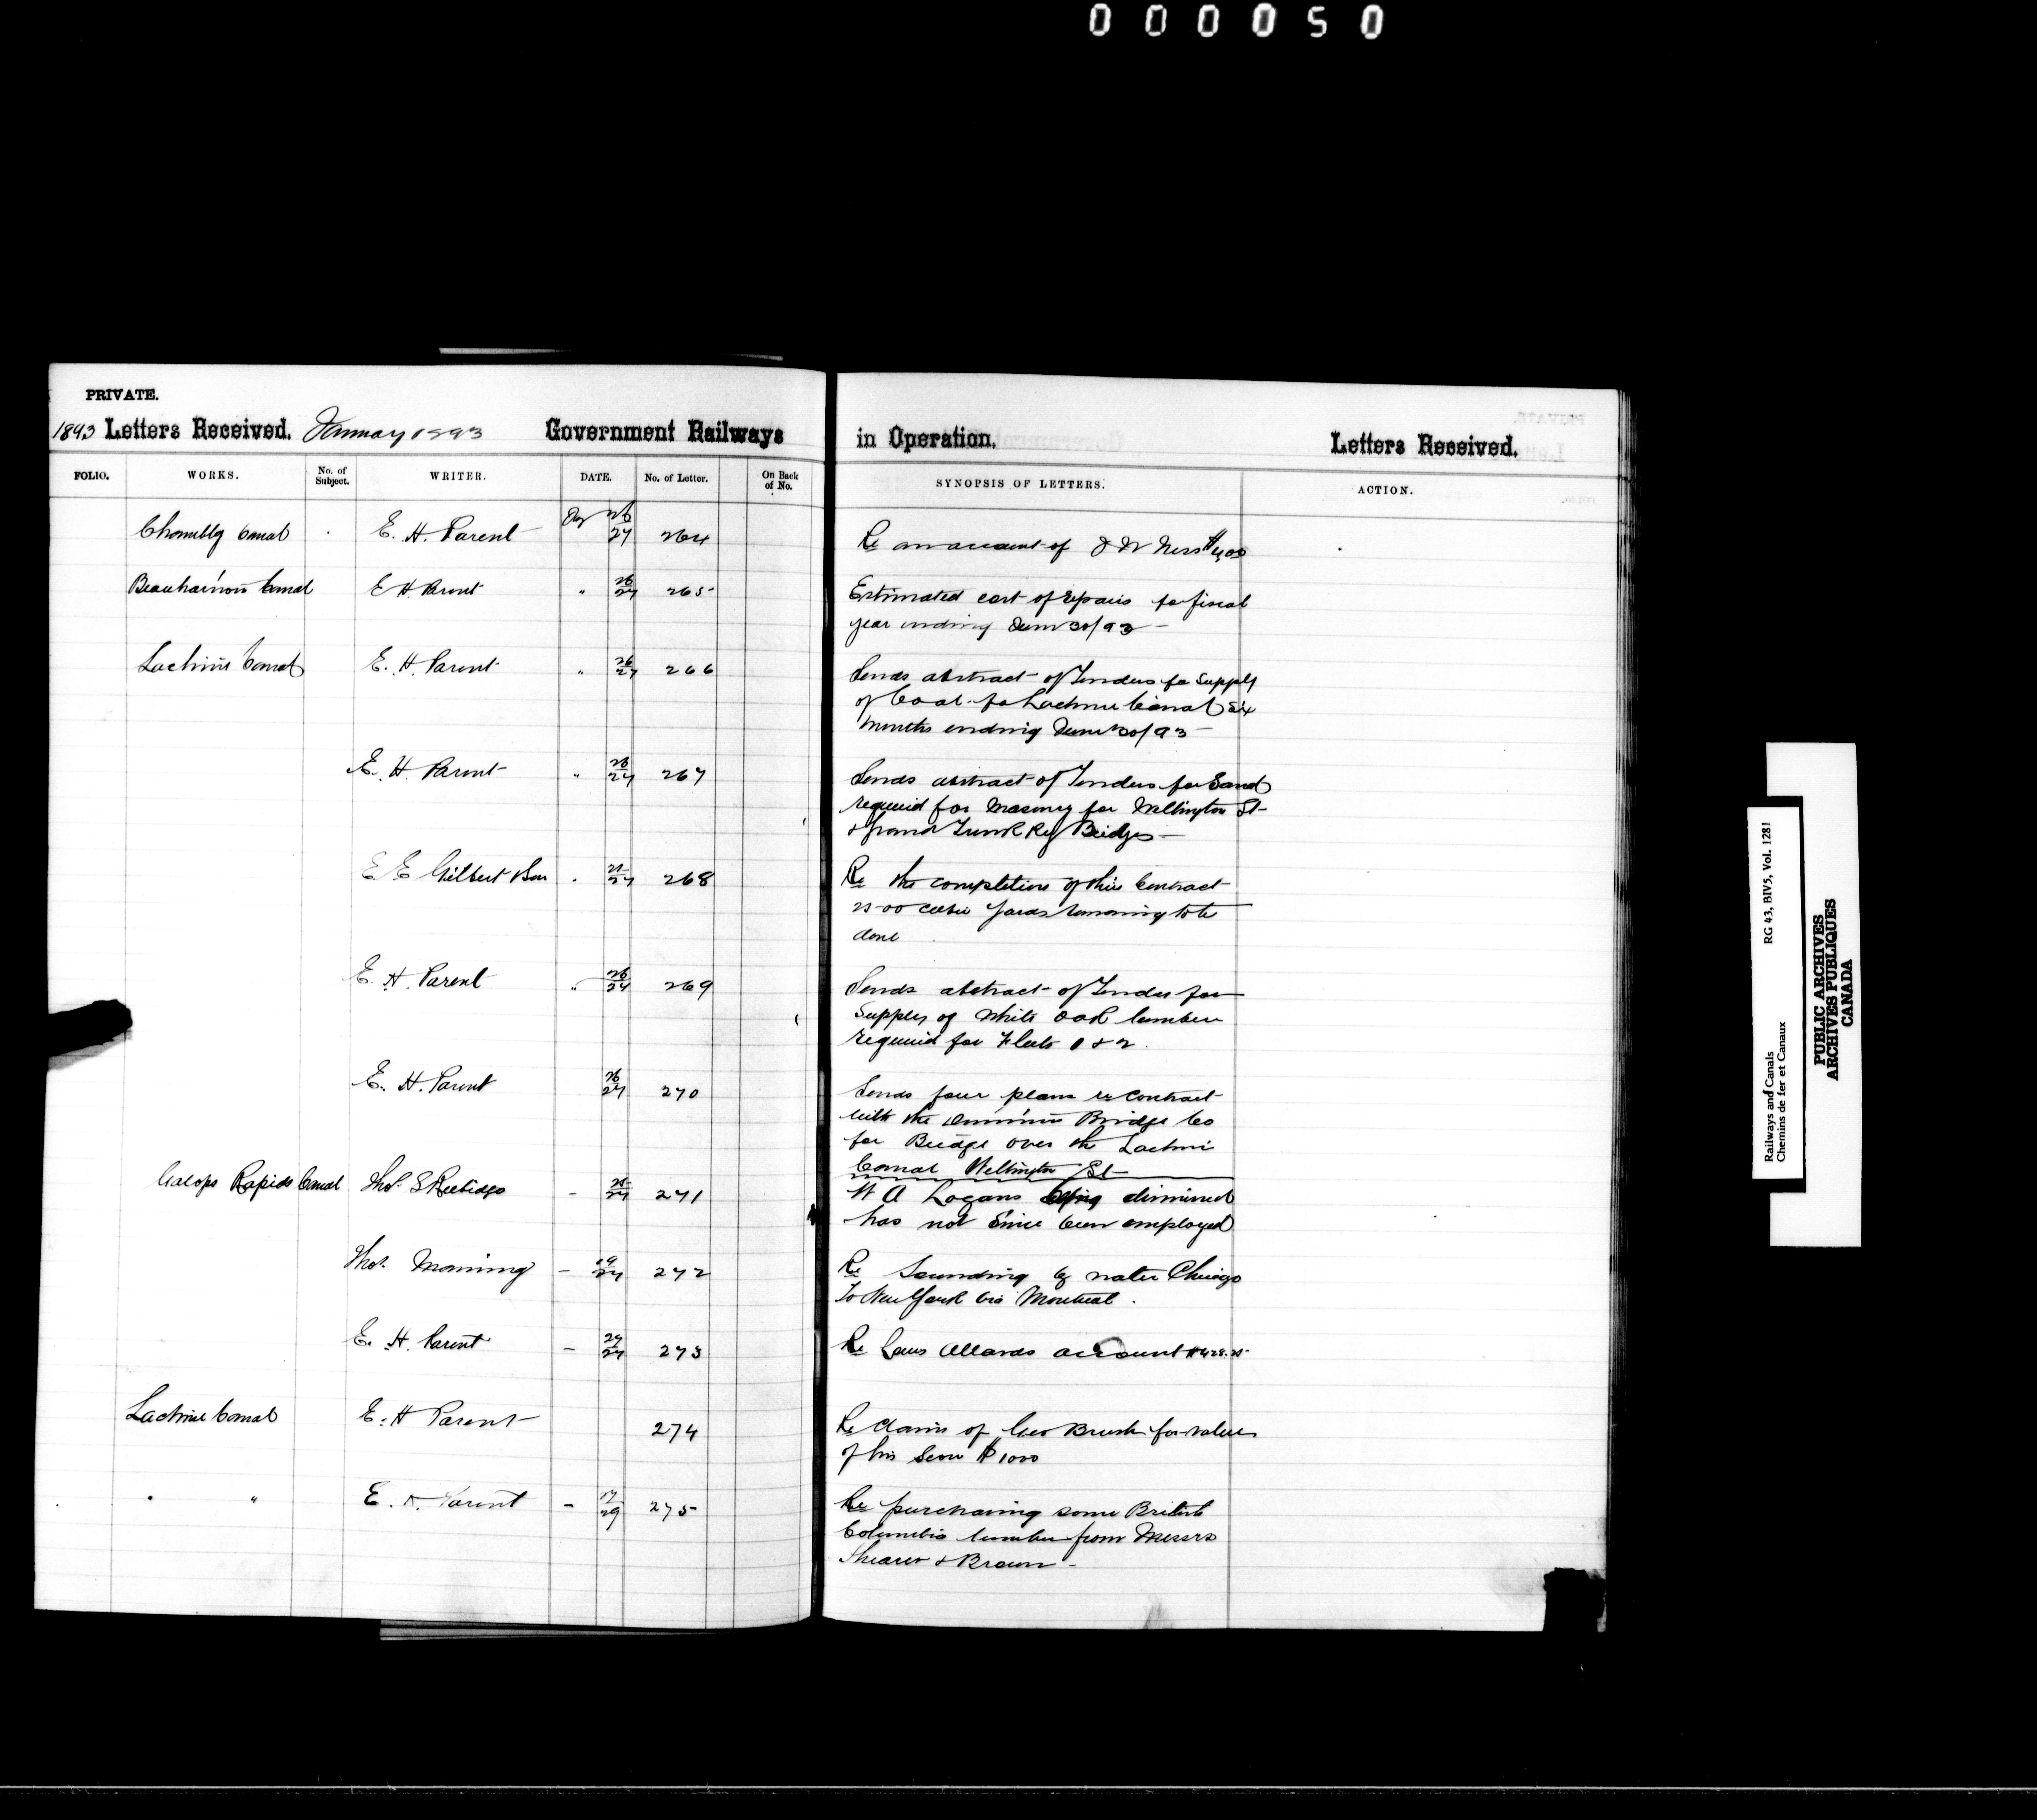 000050
PRIVATE.
1893 Letters Received. January 1893 Government Railways in Operation. Letters Received.
FOLIO. WORKS. No. of Subject. WRITER. DATE. No. of Letter. On Back of No. SYNOPSIS OF LETTERS. ACTION.
Chambly Canal E. H. Parent 26/27 264 Re an account of J W Ness $4.00
Beauharnois Canal E H Parent " 26/27 265 Estimated cost of repairs for fiscal
year ending June 30/93
Lachine Canal E. H. Parent " 26/27 266 Sends abstract of Tenders for Supply
of Coal for Lachine Canal Six
Months ending June 30/93
E. H. Parent " 26/27 267 Sends abstract of Tenders for Sand
required for Masonry for Wellington St
& Grand Trunk Ry Bridges
E E Gilbert & Son 268 Re the completion of this Contract
2500 cubic yards remaining to be
done
E. H. Parent " 26/27 269 Sends abstract of Tender for
Supply of White Oak lumber
required for Fleets 1 & 2.
E. H. Parent 26/27 270 Sends four plans re contract
with the Dominion Bridge Co
for Bridge over the Lachine
Canal Wellington St
Galops Rapids Canal Thos. S Rubidge 25/27 271 W A Logans being dismissed
has not since been employed
Thos. Monning 272 Re Sounding by water Chicago
To New York via Montreal.
E. H. Parent 273 Re Louis Allards account
Lachine Canal E. H Parent 274 Re claim of Geo Brush for value
of his Scow $1000
" " E. H. Parent 27/29 275 Re purchasing some British
Columbia lumber from Messrs
Shearer & Brown
Railways and Canals RG 43, BIV5, Vol. 1281
Chemins de fer et Canaux
PUBLIC ARCHIVES
ARCHIVES PUBLIQUES
CANADA